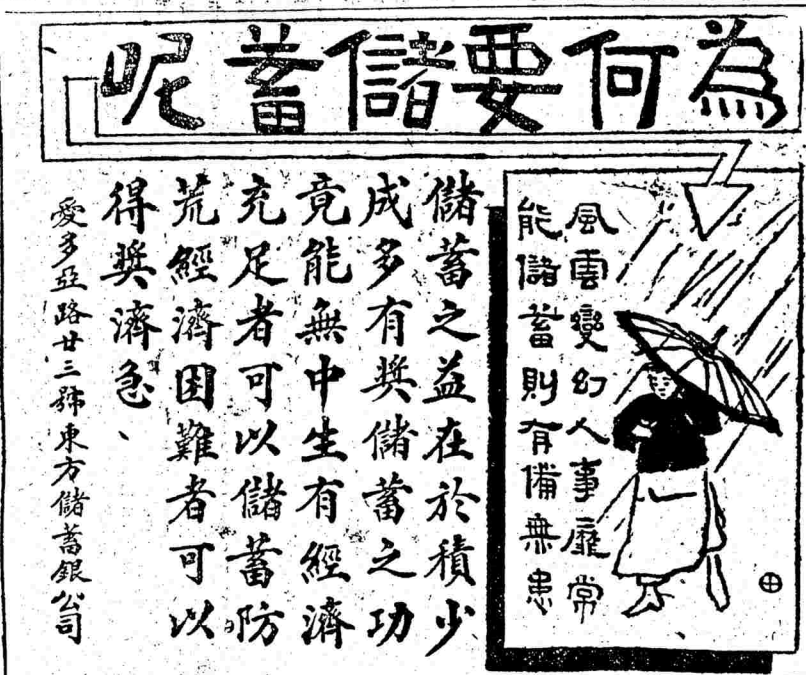 為何要儲蓄呢
風雲變幻人事靡常
能儲蓄則有備無患
儲蓄之益在於積少
成多有獎儲蓄之功
竟能無中生有經濟
充足者可以儲蓄防
荒經濟困難者可以
得獎濟急、
愛多亞路廿三號東方儲蓄銀公司